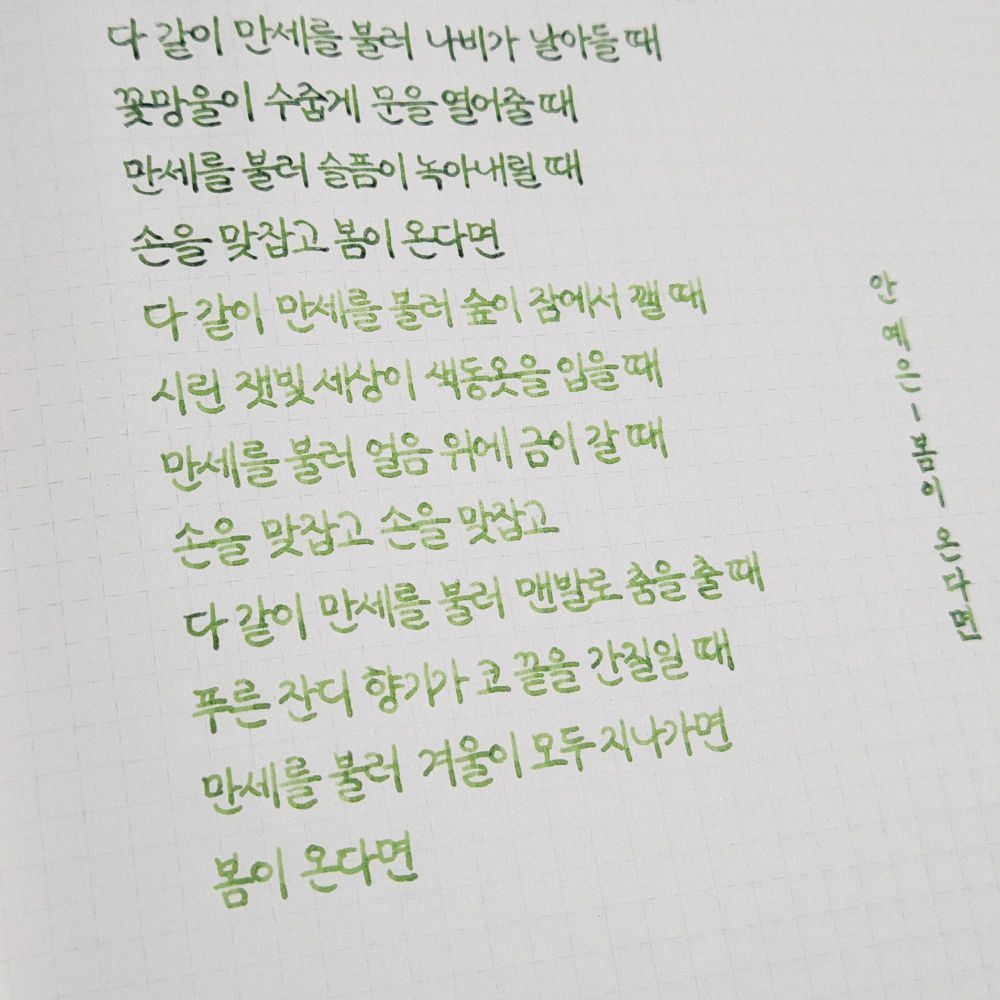 다 같이 만세를 불러 나비가 날아들 때
꽃망울이 수줍게 문을 열어줄 때
만세를 불러 슬픔이 녹아내릴 때
손을 맞잡고 봄이 온다면
다 같이 만세를 불러 숲이 잠에서 깰 때
시린 잿빛 세상이 색동옷을 입을 때
만세를 불러 얼음 위에 금이 갈 때
손을 맞잡고 손을 맞잡고
다 같이 만세를 불러 맨발로 춤을 출 때
푸른 잔디 향기가 코 끝을 간질일 때
만세를 불러 겨울이 모두 지나가면
봄이 온다면
안예은-봄이 온다면